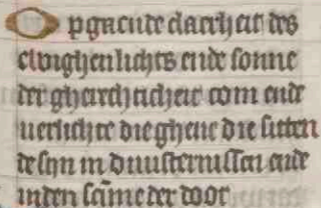 Opgaende claerheit des
ewighen lichts ende sonne
der gherechticheit com ende
verlichte die ghene die sitten
de syn in duusternissen ende
inden scēme der doot